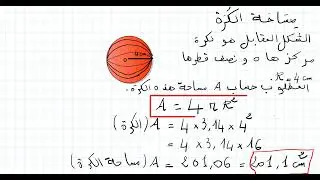 مساحة الكرة
الشكل المقابل هو كرة
مركزها o و نصف قطرها
R = 4 cm
المطلوب حساب A مساحة هذه الكرة.
A = 4 π R²
(الكرة) A = 4 × 3,14 × 4²
= 4 × 3,14 × 16
(مساحة الكرة) A = 201,06 = 201,1 cm²